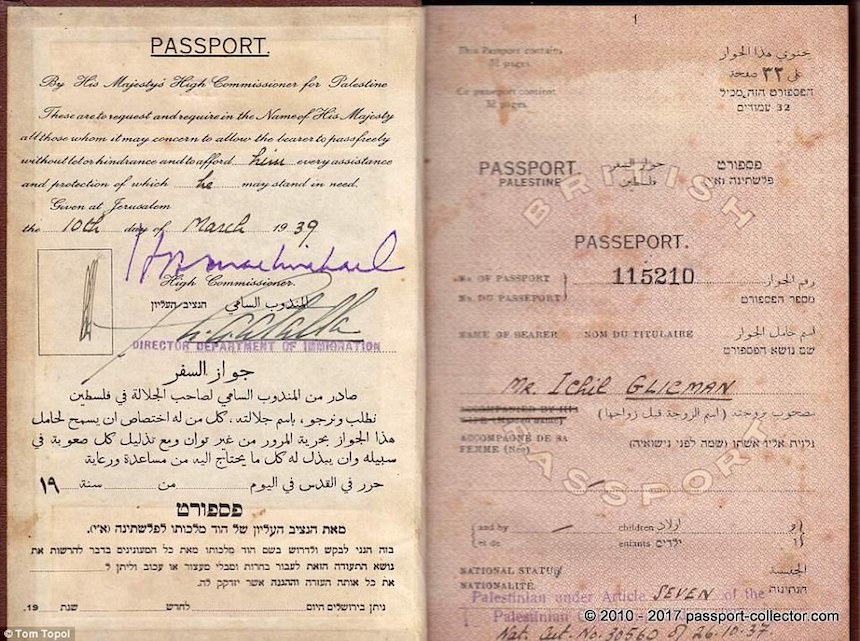 PASSPORT.
By His Majesty's High Commissioner for Palestine
These are to request and require in the Name of His Majesty
all those whom it may concern to allow the bearer to pass freely
without let or hindrance and to afford him every assistance
and protection of which he may stand in need.
Given at Jerusalem
the 10th day of March 1939
High Commissioner.
المندوب السامي הנציב העליון
DIRECTOR DEPARTMENT OF IMMIGRATION
جواز السفر
صادر من المندوب السامي لصاحب الجلالة في فلسطين
نطلب ونرجو، باسم جلالته، كل من له اختصاص ان يسمح لحامل
هذا الجواز بحرية المرور من غير توان ومع تذليل كل صعوبة في
سبيله وان يبذل له كل ما يحتاج اليه من مساعدة ورعاية
حرر في القدس في اليوم من سنة ١٩
פספורט
מאת הנציב העליון של הוד מלכותו לפלשתינה (א״י).
בזה הנני לבקש ולדרוש בשם הוד מלכותו מאת כל המעונינים בדבר להרשות את
נושא התעודה הזאת לעבור בחרות ומבלי מעצור או עכוב וליתן ל
את כל אותה העזרה וההגנה אשר יזדקק לה.
ניתן בירושלים היום לחדש שנת 19.
Tom Topol
1
This Passport contains
32 pages.
Ce passeport contient
32 pages.
يحتوي هذا الجواز
على ٣٢ صفحة
הפספורט הזה מכיל
32 עמודים
PASSPORT. جواز السفر פספורט
PALESTINE فلسطين פלשתינה (א״י)
BRITISH
PASSEPORT.
No. OF PASSPORT 115210 رقم الجواز
No. DU PASSEPORT מספר הפספורט
NAME OF BEARER NOM DU TITULAIRE اسم حامل الجواز
שם נושא הפספורט
Mr. Ichil GLICMAN
ACCOMPANIED BY HIS مصحوب بزوجته (اسم الزوجة قبل زواجها)
WIFE (Maiden name)
ACCOMPAGNÉ DE SA נלוית אליו אשתו (שמה לפני נישואיה)
FEMME (Née)
PASSPORT
and by children اولاد و
et de enfants ילדים ו
NATIONAL STATUS الجنسية
NATIONALITÉ. הנתינות
Palestinian under Article SEVEN of the
Palestinian
© 2010 - 2017 passport-collector.com
Nat. Cert. No. 30560 of 26.10.37